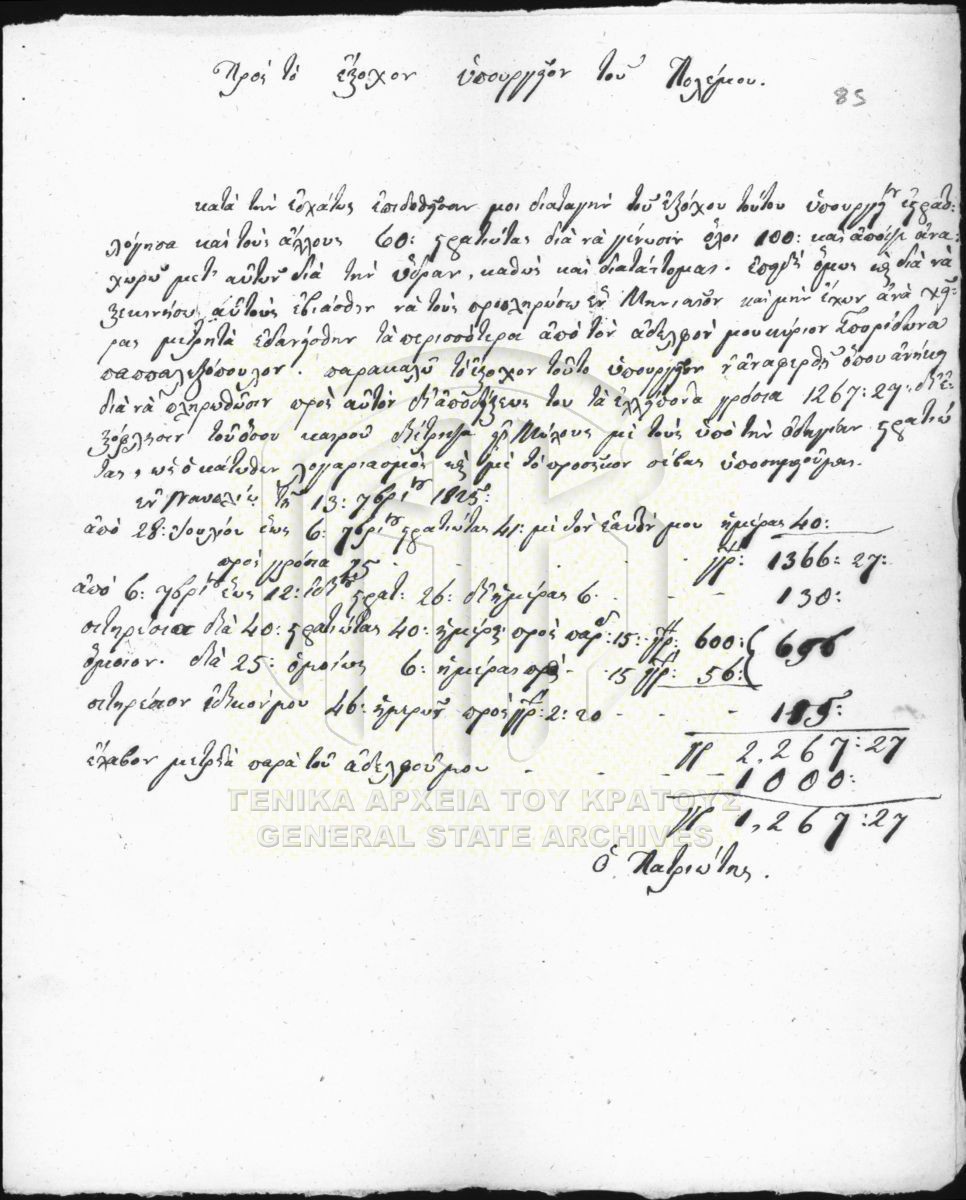 Πρὸς τὸ ἔξοχον ὑπουργεῖον τοῦ Πολέμου.
85
κατὰ τὴν ἐσχάτως ἐπιδοθεῖσαν μοι διαταγὴν τοῦ ἐξόχου τούτου ὑπουργείου ἐστρατο:
λόγησα καὶ τοὺς ἄλλους 60: στρατιώτας διὰ νὰ γίνωσιν ὅλοι 100: καὶ ἀπόψε ἀνα
χωρῶ μετ' αὐτῶν διὰ τὴν ὕδραν, καθὼς καὶ διατάττομαι. ἐπειδὴ ὅμως καὶ διὰ νὰ
ξεκινήσω αὐτοὺς ἐβιάσθην νὰ τοὺς προπληρώσω ἓν μηνιαῖον καὶ μὴν ἔχων ἀνὰ χεῖ:
ρας μετρητὰ ἐδανείσθην τὰ περισσότερα ἀπὸ τὸν ἀδελφόν μου κύριον Σπορίδωνα
παππαλεξόπουλον. παρακαλῶ τὸ ἔξοχον τοῦτο ὑπουργεῖον ν' ἀναφερθῇ ὅπου ἀνήκει
διὰ νὰ πληρωθῶσιν πρὸς αὐτὸν δι' ἀποδείξεώς του τὰ ἐλλείποντα γρόσια 1267:27: δι' ἐ
ξόφλησιν τοῦ ὅσου καιροῦ διέτριψα εἰς Μύλους μὲ τοὺς ὑπὸ τὴν ὁδηγίαν στρατιώ
τας, ὡς ὁ κάτωθεν λογαριασμὸς καὶ μὲ τὸ προσῆκον σέβας ὑποσημειοῦμαι.
ἐν Ναυπλίῳ τῇ 13: 7βρίου 1825:
ἀπὸ 28: Ἰουλίου ἕως 6: 7βρίου στρατιώτας 41: μὲ τὸν ἑαυτόν μου ἡμέρας 40:
πρὸς γρόσια 25 γρ: 1366:27:
ἀπὸ 6: 7βρίου ἕως 12: ἰδίου στρατ: 26: δι' ἡμέρας 6 130:
σιτηρέσια διὰ 40: στρατιώτας 40: ἡμέρες πρὸς παρ: 15: γρ: 600: 656
ὅμοιον. διὰ 25: ὁμοίως 6: ἡμέρας πρὸς 15 γρ: 56:
σιτηρέσιον ἐδικόν μου 46: ἡμερῶν πρὸς γρ: 2:20 115:
γρ 2,267:27
ἔλαβον μετρητὰ παρὰ τοῦ ἀδελφοῦ μου 1000:
γρ 1,267:27
ὁ Πατριώτης.
ΓΕΝΙΚΑ ΑΡΧΕΙΑ ΤΟΥ ΚΡΑΤΟΥΣ
GENERAL STATE ARCHIVES